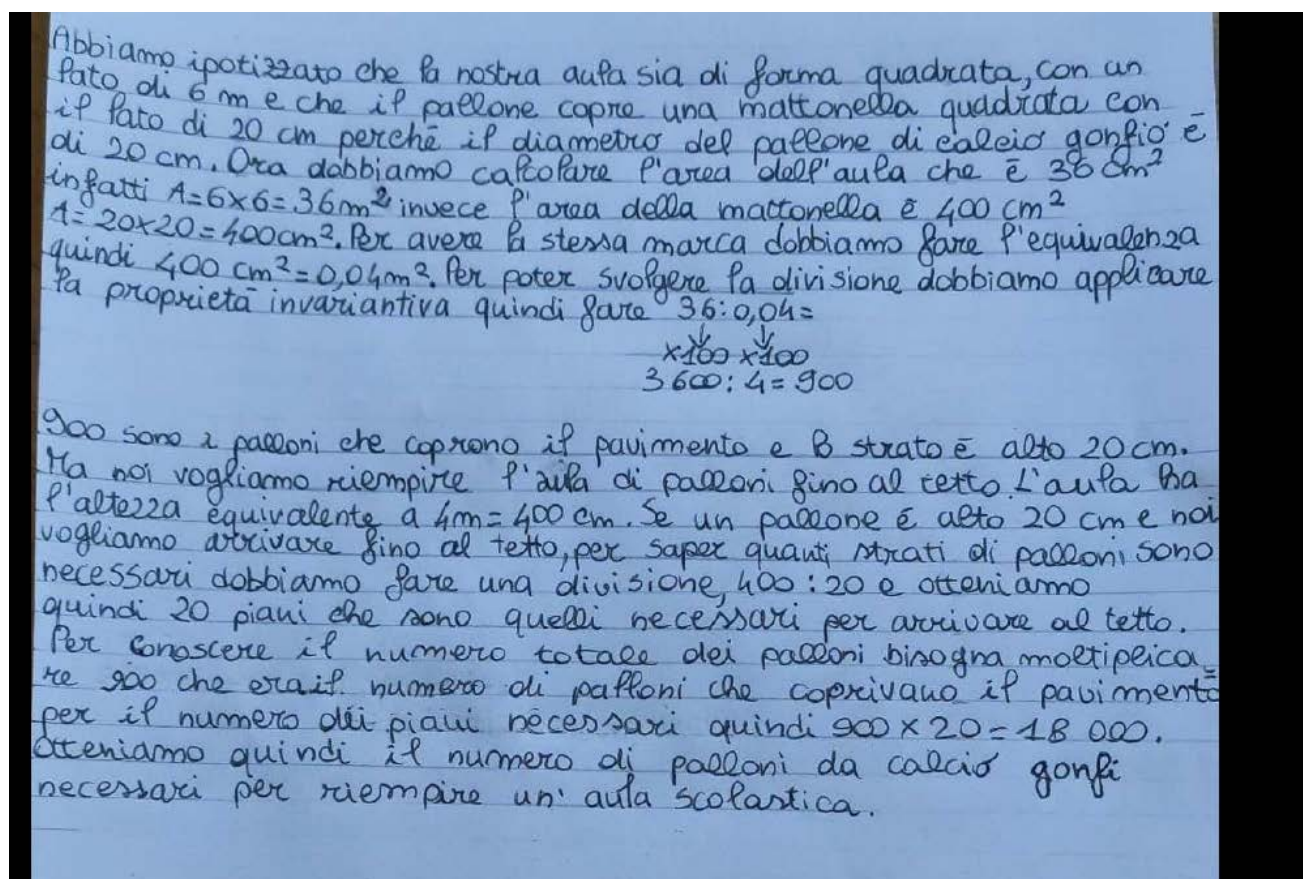 Abbiamo ipotizzato che la nostra aula sia di forma quadrata, con un
lato di 6 m e che il pallone copre una mattonella quadrata con
il lato di 20 cm perchē il diametro del pallone di calcio gonfio ē
di 20 cm. Ora dobbiamo calcolare l'area dell'aula che ē 36 m²
infatti A=6×6=36m² invece l'area della mattonella ē 400 cm²
A=20×20=400cm². Per avere la stessa marca dobbiamo fare l'equivalenza
quindi 400 cm²=0,04m². Per poter svolgere la divisione dobbiamo applicare
la proprietā invariantiva quindi fare 36:0,04=
×100 ×100
3600:4=900
900 sono i palloni che coprono il pavimento e lo strato ē alto 20 cm.
Ma noi vogliamo riempire l'aula di palloni fino al tetto. L'aula ha
l'altezza equivalente a 4m=400 cm. Se un pallone ē alto 20 cm e noi
vogliamo arrivare fino al tetto, per saper quanti strati di palloni sono
necessari dobbiamo fare una divisione, 400:20 e otteniamo
quindi 20 piani che sono quelli necessari per arrivare al tetto.
Per conoscere il numero totale dei palloni bisogna moltiplica=
re 900 che era il numero di palloni che coprivano il pavimento
per il numero dei piani necessari quindi 900×20=18 000.
Otteniamo quindi il numero di palloni da calcio gonfi
necessari per riempire un'aula scolastica.